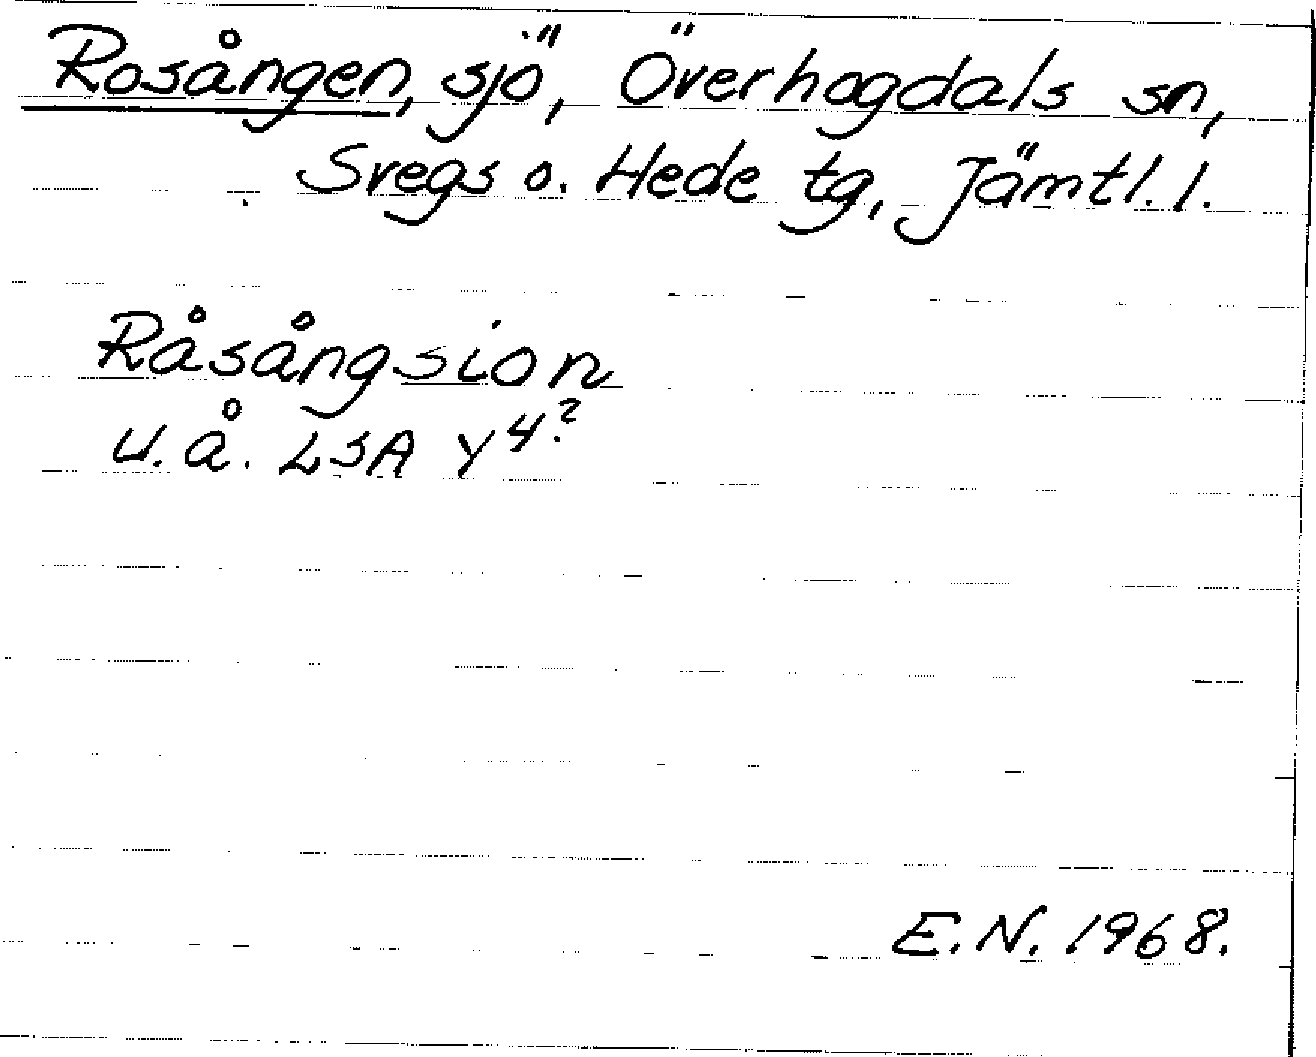 Rosången, sjö, Överhogdals sn,
Svegs o. Hede tg, Jämtl. l.
Råsångsion
u.å. LSA Y4?
E.N. 1968.